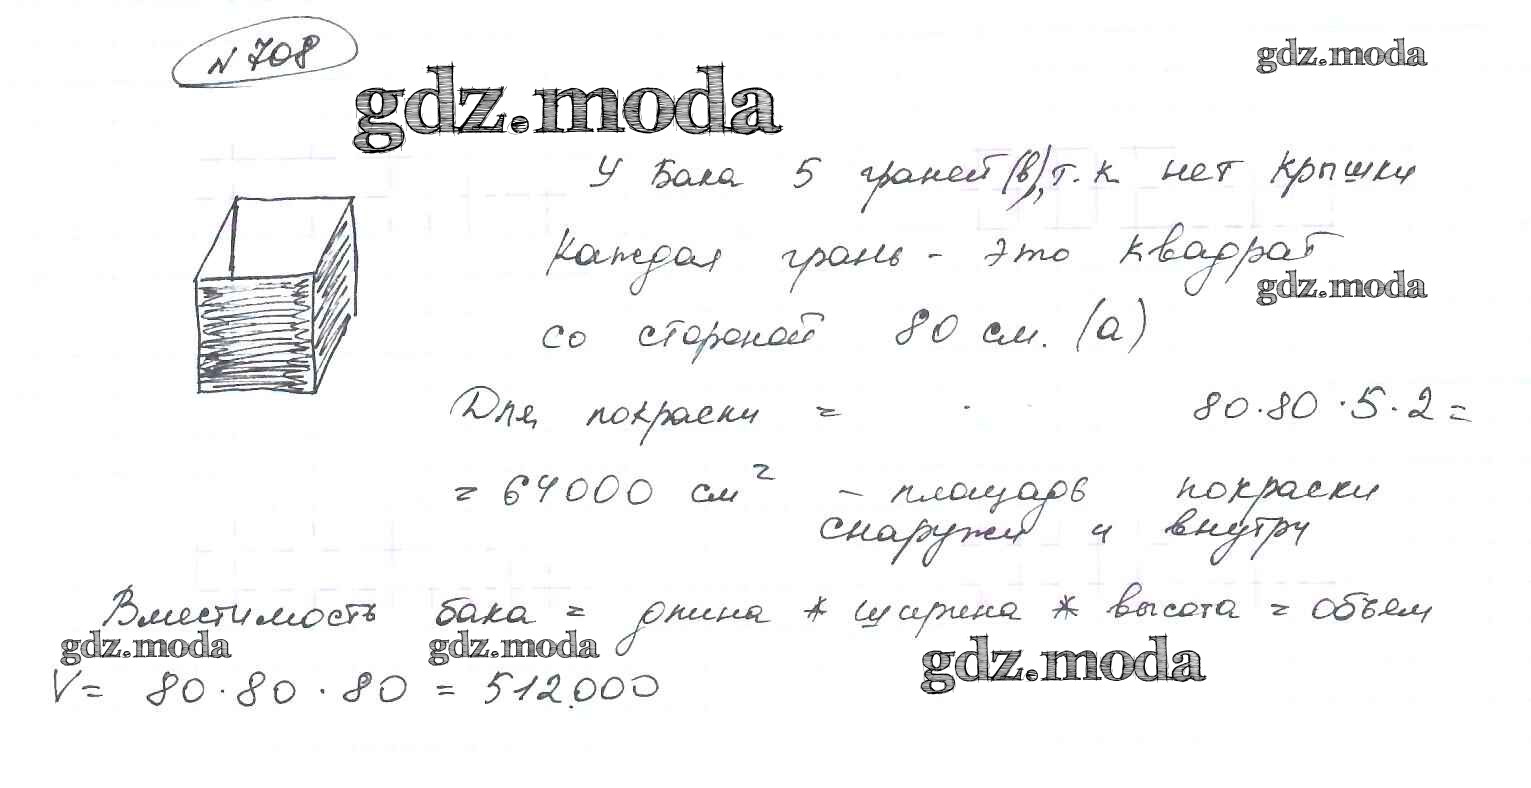 № 708
gdz.moda
gdz.moda
У бака 5 граней (в), т.к нет крышки
Каждая грань - это квадрат
gdz.moda
со стороной 80 см. (а)
Для покраски = 80·80·5·2 =
= 64000 см² - площадь покраски
снаружи и внутри
Вместимость бака = длина * ширина * высота = объем
gdz.moda gdz.moda gdz.moda
V = 80·80·80 = 512.000